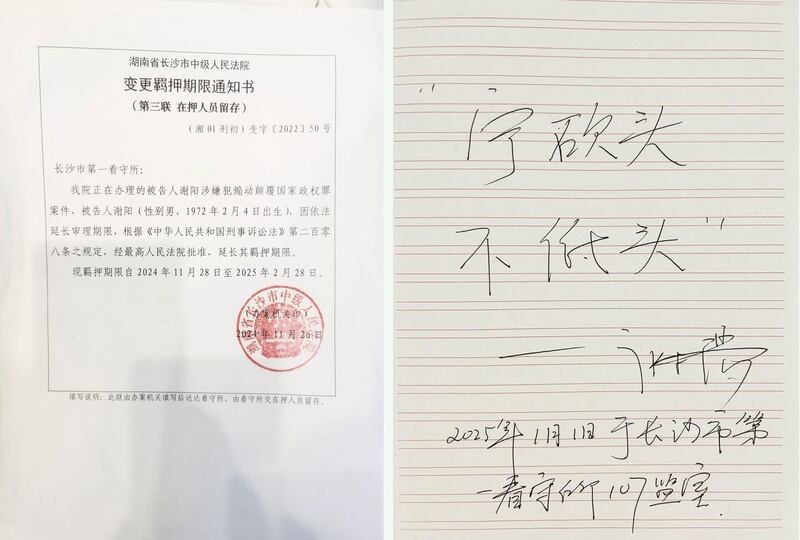 湖南省长沙市中级人民法院
变更羁押期限通知书
(第三联 在押人员留存)
(湘 01 刑初) 变字〔2022〕50 号
长沙市第一看守所:
我院正在办理的被告人谢阳涉嫌犯煽动颠覆国家政权罪
案件, 被告人谢阳 (性别男, 1972 年 2 月 4 日出生), 因依法
延长审理期限, 根据《中华人民共和国刑事诉讼法》第二百零
八条之规定, 经最高人民法院批准, 延长其羁押期限。
现羁押期限自 2024 年 11 月 28 日至 2025 年 2 月 28 日。
湖南省长沙市中级人民法院
(办案机关印)
2024 年 11 月 26 日
填写说明: 此联由办案机关填写后送达看守所, 由看守所交在押人员留存。
"宁砍头
不低头"
——谢阳
2025年1月1日于长沙市第
一看守所107监室.